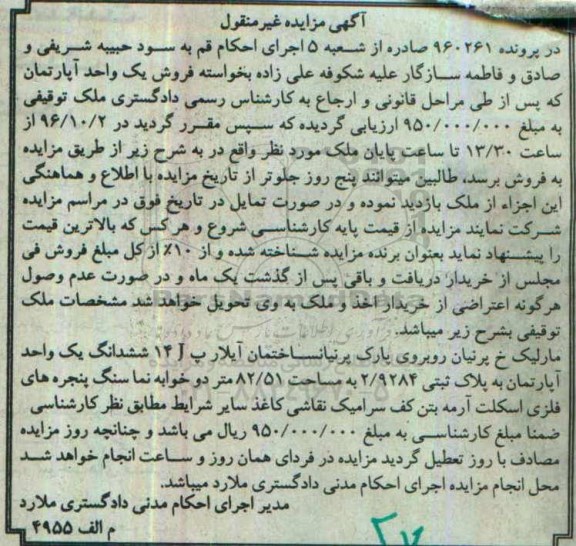 آگهی مزایده غیرمنقول
در پرونده ۹۶۰۲۶۱ صادره از شعبه ۵ اجرای احکام قم به سود حبیبه شریفی و
صادق و فاطمه سازگار علیه شکوفه علی زاده بخواسته فروش یک واحد آپارتمان
که پس از طی مراحل قانونی و ارجاع به کارشناس رسمی دادگستری ملک توقیفی
به مبلغ ۹۵۰/۰۰۰/۰۰۰ ارزیابی گردیده که سپس مقرر گردید در ۹۶/۱۰/۲ از
ساعت ۱۳/۳۰ تا ساعت پایان ملک مورد نظر واقع در به شرح زیر از طریق مزایده
به فروش برسد، طالبین میتوانند پنج روز جلوتر از تاریخ مزایده با اطلاع و هماهنگی
این اجراء از ملک بازدید نموده و در صورت تمایل در تاریخ فوق در مراسم مزایده
شرکت نمایند مزایده از قیمت پایه کارشناسی شروع و هرکس که بالاترین قیمت
را پیشنهاد نماید بعنوان برنده مزایده شناخته شده و از ۱۰٪ از کل مبلغ فروش فی
مجلس از خریدار دریافت و باقی پس از گذشت یک ماه و در صورت عدم وصول
هرگونه اعتراضی از خریدار اخذ و ملک به وی تحویل خواهد شد مشخصات ملک
توقیفی بشرح زیر میباشد.
مارلیک خ پرنیان روبروی پارک پرنیانساختمان آیلار پ آ ۱۴ ششدانگ یک واحد
آپارتمان به پلاک ثبتی ۲/۹۲۸۴ به مساحت ۸۲/۵۱ متر دو خوابه نما سنگ پنجره های
فلزی اسکلت آرمه بتن کف سرامیک نقاشی کاغذ سایر شرایط مطابق نظر کارشناسی
ضمنا مبلغ کارشناسی به مبلغ ۹۵۰/۰۰۰/۰۰۰ ریال می باشد و چنانچه روز مزایده
مصادف با روز تعطیل گردید مزایده در فردای همان روز و ساعت انجام خواهد شد
محل انجام مزایده اجرای احکام مدنی دادگستری ملارد میباشد.
مدیر اجرای احکام مدنی دادگستری ملارد
م الف ۴۹۵۵